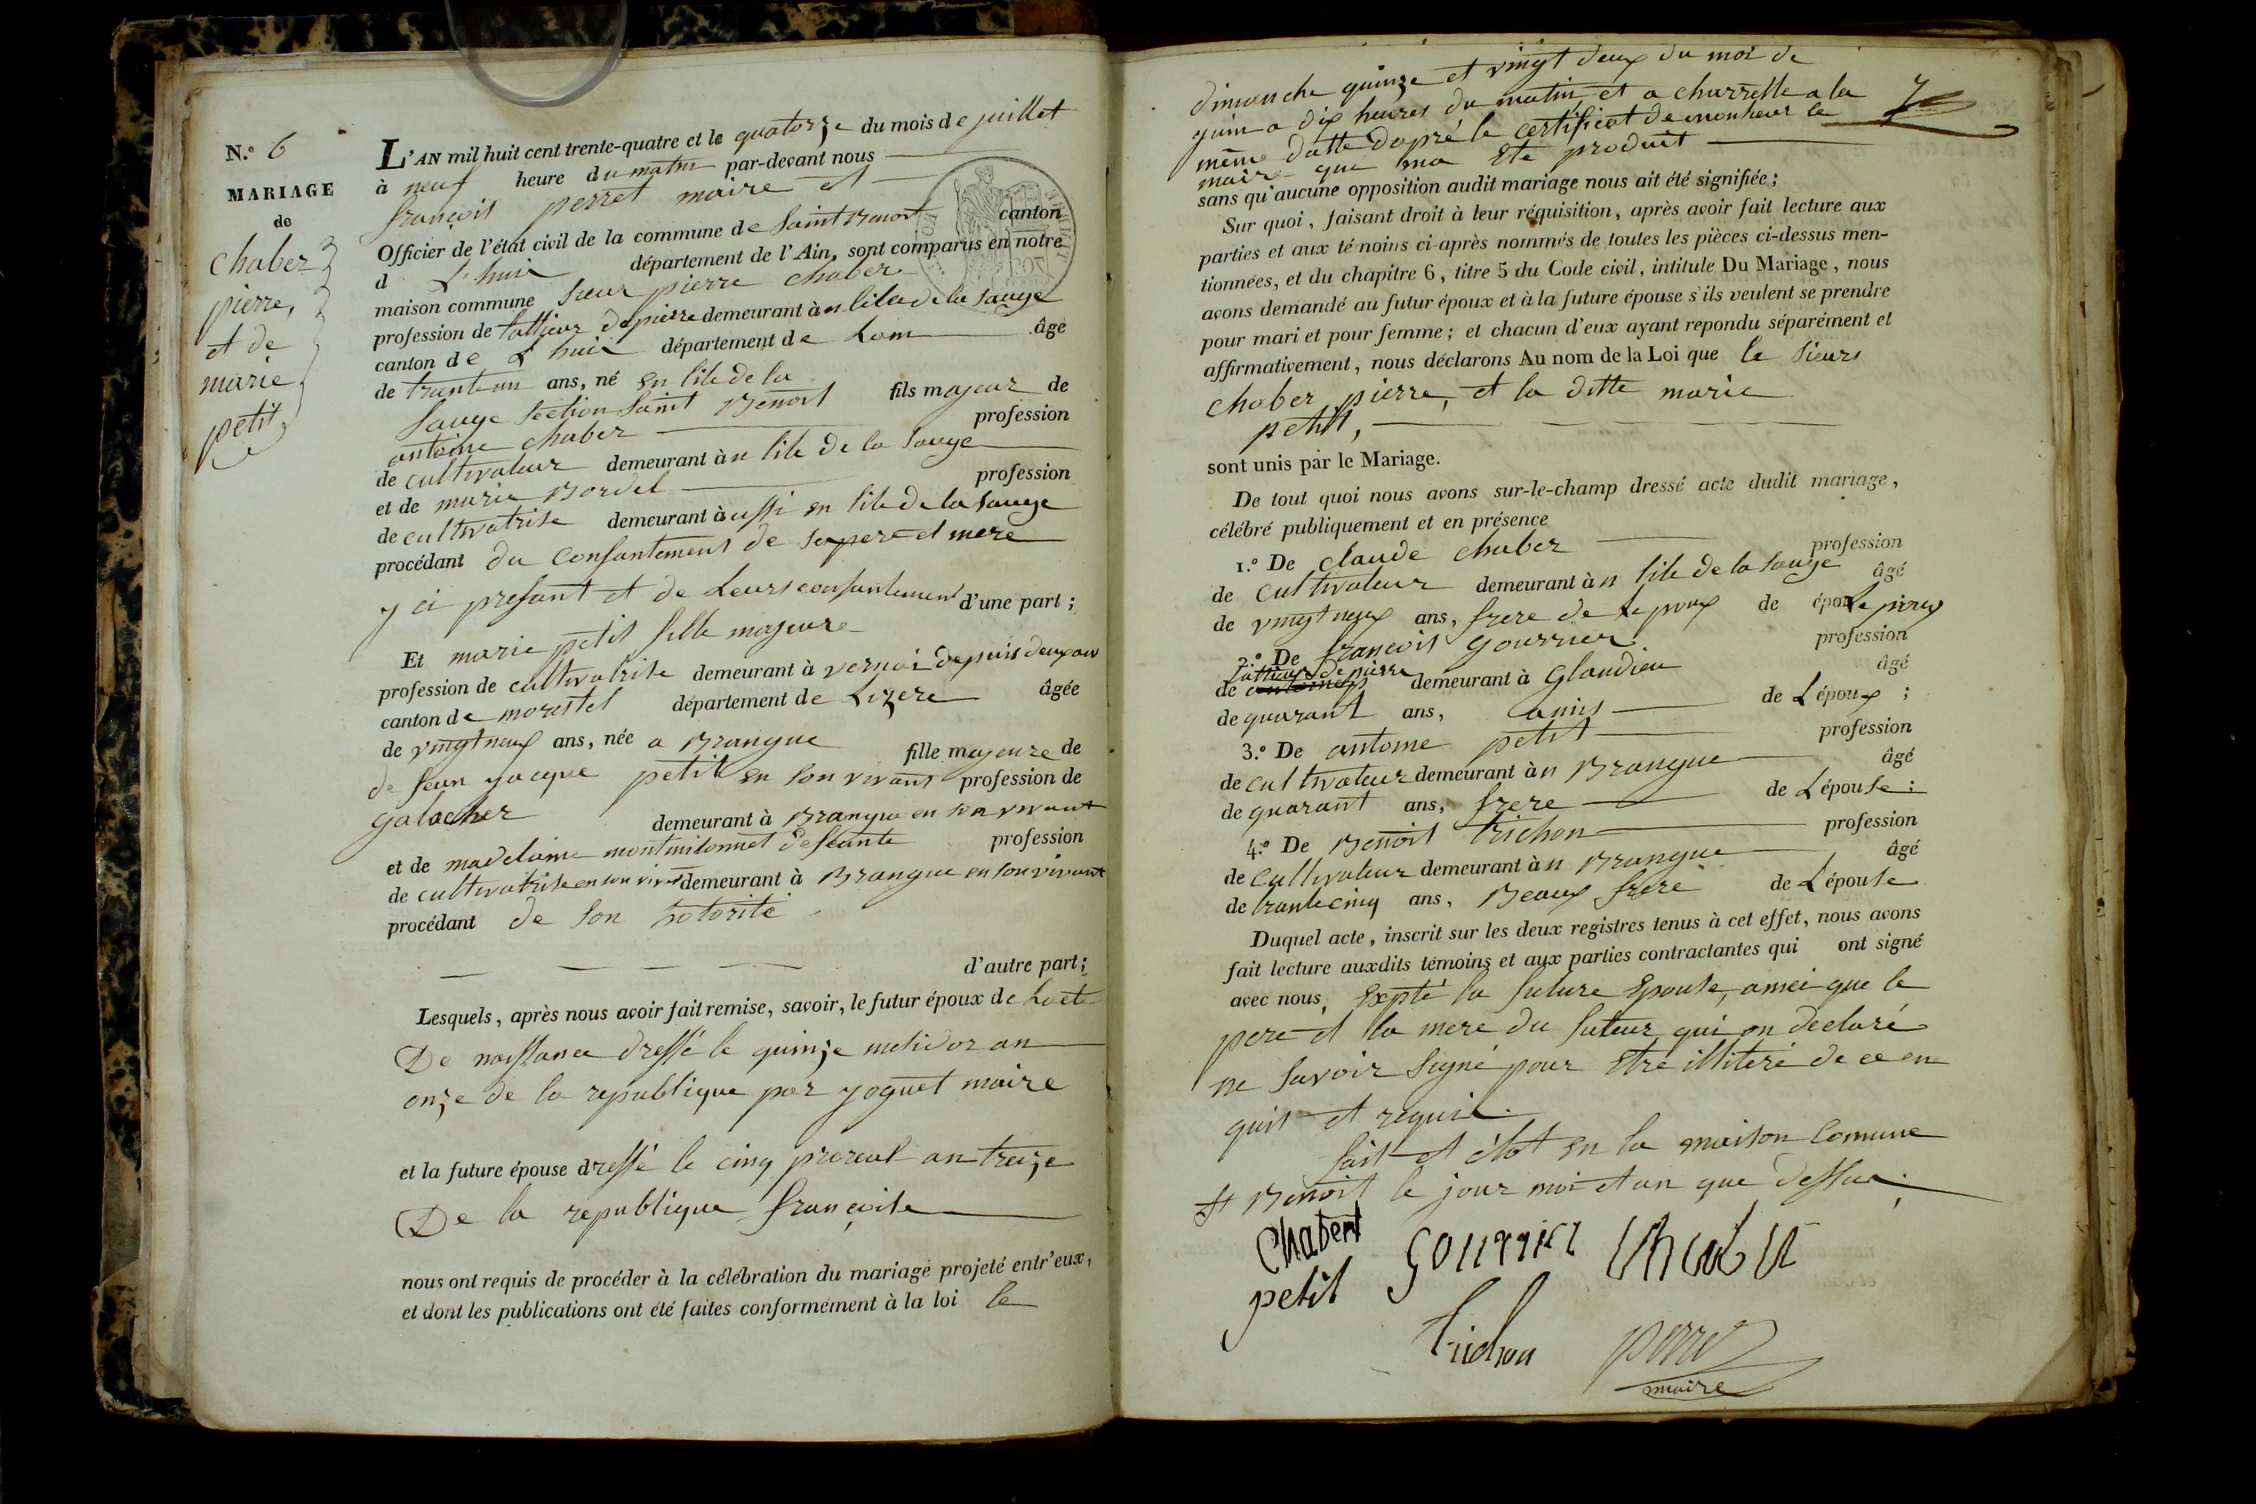 N.º 6
MARIAGE
de
chaber
pierre,
et de
marie
petit,
L'AN mil huit cent trente-quatre et le quatorze du mois de juillet
à neuf heure du matin par-devant nous
françois perret maire et
Officier de l'état civil de la commune de Saint Benoit canton
d L'huis département de l'Ain, sont comparus en notre
maison commune sieur pierre chaber
profession de tallieur de pierre demeurant à n lile de la Sauge
canton de L'huis département de Lain âgé
de trante un ans, né en lile de la
Sauge section Saint Benoit fils majeur de
antoine chaber profession
de cultivateur demeurant à n lile de la Sauge
et de marie Bordel profession
de cultivatrise demeurant à ussi en lile de la Sauge
procédant du consantement de se pere et mere
y ci presant et de Leurs consantement d'une part ;
Et marie petit fille majeure
profession de cultivatrise demeurant à vernai depuis deux an
canton de morestel département de Lizere âgée
de vingt neuf ans, née a Brangue fille majeure de
de feux jacque petit en son vivant profession de
galocher demeurant à Brangue en son vivant
et de madelaine montmitonnet defeunte profession
de cultivatrise en son vivant demeurant à Brangue en son vivant
procédant de son totorité
d'autre part ;
Lesquels, après nous avoir fait remise, savoir, le futur époux de Lacte
De naissance dressé le quinze mesidor an
onze de la republique par joguet maire
et la future épouse dressé le cinq prereal an treize
De la republique françoise
nous ont requis de procéder à la célébration du mariage projeté entr'eux,
et dont les publications ont été faites conformément à la loi le
dimanche quinze et vingt deux du moi de
juin a dix heures du matin et a charrette a la
7
même datte dapré le certificat de monsieur le
maire que ma ete produit
sans qu'aucune opposition audit mariage nous ait été signifiée ;
Sur quoi, faisant droit à leur réquisition, après avoir fait lecture aux
parties et aux témoins ci-après nommés de toutes les pièces ci-dessus men-
tionnées, et du chapitre 6, titre 5 du Code civil, intitule Du Mariage, nous
avons demandé au futur époux et à la future épouse s'ils veulent se prendre
pour mari et pour femme ; et chacun d'eux ayant repondu séparément et
affirmativement, nous déclarons Au nom de la Loi que le sieurs
chaber pierre, et la ditte marie
petit,
sont unis par le Mariage.
De tout quoi nous avons sur-le-champ dressé acte dudit mariage,
célébré publiquement et en présence
1.º De claude chaber profession
de cultivateur demeurant à n lile de la Sauge âgé
de vingt neuf ans, frere de Lepoux de époux Lepoux
2.º De françois gourrier profession
tallieur de pierre
de demeurant à Glandieu âgé
de quarant ans, amis de Lépoux ;
3.º De antoine petit profession
de cultivateur demeurant à n Brangue âgé
de quarant ans, frere de Lépouse :
4.º De Benoit trichon profession
de cultivateur demeurant à n Brangue âgé
de trante cinq ans, Beaux frere de Lépouse
Duquel acte, inscrit sur les deux registres tenus à cet effet, nous avons
fait lecture auxdits témoins et aux parties contractantes qui ont signé
avec nous, expté la future epouse, ainsi que le
pere et la mere du futeur qui on declaré
ne savoir signé pour etre illiteré de ce en
quis et requis.
fait et clot en la maison Comune
St Benoit le jour moi et an que dessus.
Chabert gourrier Chabert
petil
trichon perret
maire